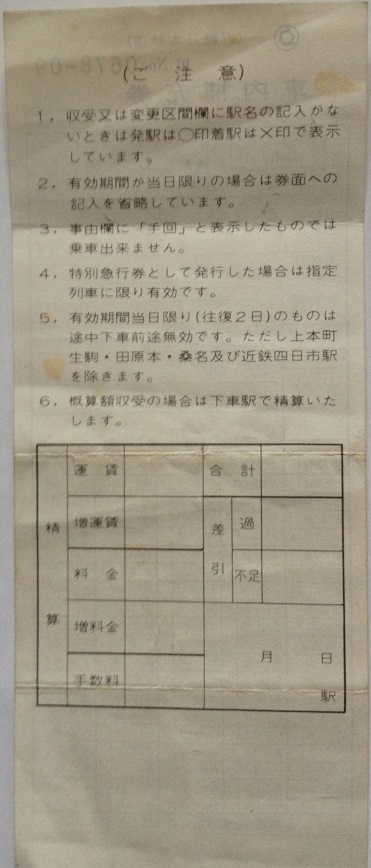 (ご注意)
1．収受又は変更区間欄に駅名の記入がな
いときは発駅は○印着駅は×印で表示
しています。
2．有効期間が当日限りの場合は券面への
記入を省略しています。
3．事由欄に「手回」と表示したものでは
乗車出来ません。
4．特別急行券として発行した場合は指定
列車に限り有効です。
5．有効期間当日限り(往復2日)のものは
途中下車前途無効です。ただし上本町
生駒・田原本・桑名及び近鉄四日市駅
を除きます。
6．概算額収受の場合は下車駅で精算いた
します。
精算
運賃
増運賃
料金
増料金
手数料
合計
差引
過
不足
月 日
駅